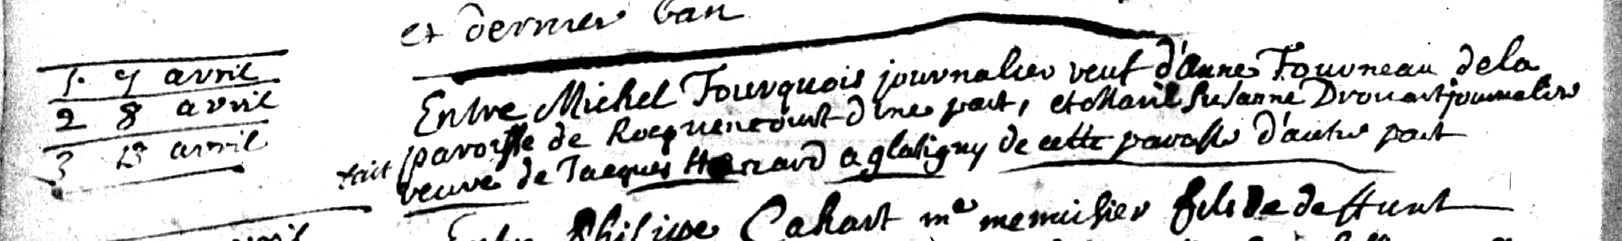 et dernier ban
1. 7 avril
2 8 avril
3 13 avril
fait
Entre Michel Fourquois journalier veuf d'Anne Fourneau de la
paroisse de Rocquencourt d'une part, et Marie Susanne Drouart journaliere
veuve de Jacques Henard a glatigny de cette paroisse d'autre part
avril
Entre Philippe Cahart me menuisier fils de defunt